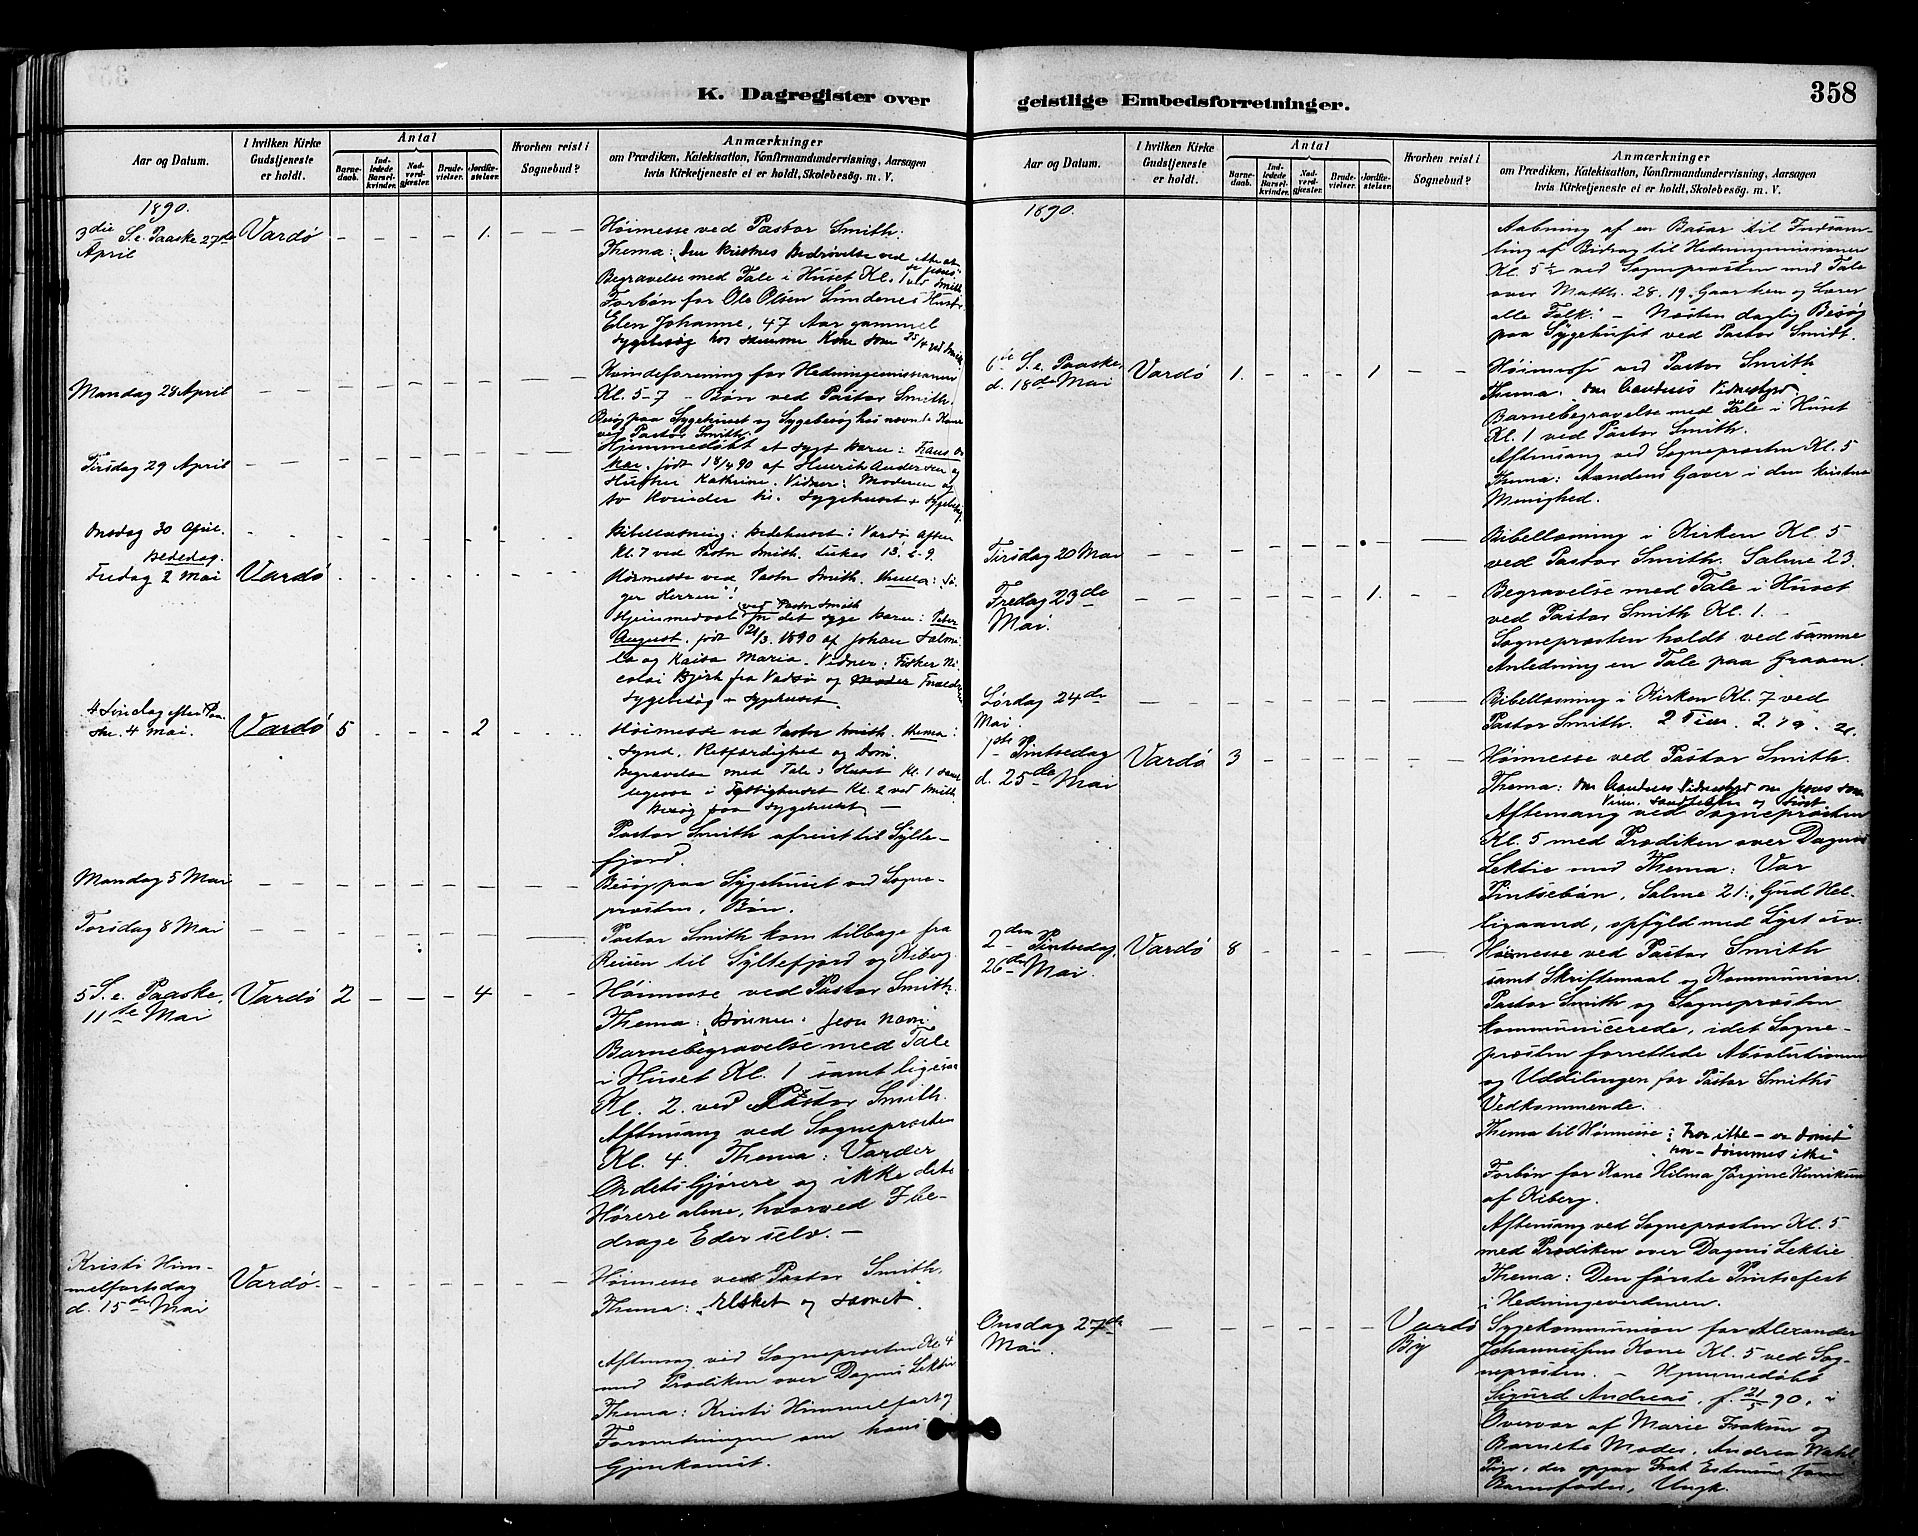 K. Dagregister over
geistlige Embedsforretninger.
358
Aar og Datum.
I hvilken Kirke Gudstjeneste er holdt.
Antal
Barnedaab.
Indledede Barselkvinder.
Nadverdgjester.
Brudevielser.
Jordfæstelser.
Hvorhen reist i Sognebud?
Anmærkninger
om Prædiken, Katekisation, Konfirmandundervisning, Aarsagen
hvis Kirketjeneste ei er holdt, Skolebesøg. m. V.
1890.
3die S. e. Paaske 27de April Vardø - - - - 1. - -
Høimesse ved Pastor Smith.
Thema: Den kristnes Bedrøvelse ved
Begravelse med Tale i Huset Kl. 1 ved Smith
Forbøn for Ole Olsen Lundenes Hustru
Elen Johanne, 47 Aar gammel
Sygebesøg hos samme Kone 25/4 ved Smith.
Mandag 28 April - - - - - - -
Kvindeforening for Hedningemissionen
Kl. 5-7 - Bøn ved Pastor Smith.
Besøg paa Sygehuset og Sygebesøg hos nævnte Kone
ved Pastor Smith.
Tirsdag 29 April - - - - - - -
Hjemmedøbt et sygt barn: Frans Os-
kar, født 18/4 90 af Henrik Andersen og
Hustru Kathrine. Vidner: Moderen og
to Kvinder til. Sygehuset + Sygebesøg.
Onsdag 30 April. - - - - - - -
Bibellæsning i Bedehuset i Vardø Aften
Kl. 7 ved Pastor Smith. Lukas 13. 6-9.
Bededag.
Fredag 2 Mai Vardø - - - - - - -
Høimesse ved Pastor Smith. Thema: Sø-
ger Herren!
ved Pastor Smith
Hjemmedaab for det syge barn: Peter
August, født 21/3 1890 af Johan Salmi-
la og Kaisa Maria. Vidner: Fisker Ni-
colai Bjørk fra Vadsø og Moder
Sygebesøg + Sygehuset.
4 Søndag efter Paaske. 4 Mai. Vardø 5 - - - 2 - -
Høimesse ved Pastor Smith. Thema:
Synd, Retfærdighed og Dom.
Begravelse med Tale i Huset Kl. 1 samt
ligesaa i Fattighuset Kl. 2 ved Smith.
Besøg paa Sygehuset —
Pastor Smith afreist til Sylte-
fjord.
Mandag 5 Mai - - - - - - -
Besøg paa Sygehuset ved Sogne-
præsten, Bøn.
Torsdag 8 Mai - - - - - - -
Pastor Smith kom tilbage fra
Reisen til Syltefjord og Kiberg.
5 S. e. Paaske, 11te Mai Vardø 2 - - - 4 - -
Høimesse ved Pastor Smith.
Thema: Bønnen i Jesu navn.
Barnebegravelse med Tale
i Huset Kl. 1 samt ligesaa
Kl. 2. ved Pastor Smith.
Aftensang ved Sognepræsten
Kl. 4. Thema: Vorder
Ordets Gjørere og ikke dets
Hørere alene, hvorved I be-
drage Eder selv. —
Kristi Him-
melfartsdag
d. 15de Mai Vardø - - - - - - -
Høimesse ved Pastor Smith,
Thema: "Elsket og savnet".
Aftensang ved Sognepræsten Kl 4
med Prædiken over Dagens Lektie
Thema: Kristi Himmelfart og
Forventningen om hans
Gjenkomst.
Aar og Datum.
I hvilken Kirke Gudstjeneste er holdt.
Antal
Barnedaab.
Indledede Barselkvinder.
Nadverdgjester.
Brudevielser.
Jordfæstelser.
Hvorhen reist i Sognebud?
Anmærkninger
om Prædiken, Katekisation, Konfirmandundervisning, Aarsagen
hvis Kirketjeneste ei er holdt, Skolebesøg. m. V.
1890.
Aabning af en Basar til Indsam-
ling af Bidrag til Hedningemissionen
Kl. 5½ ved Sognepræsten med Tale
over Matth. 28. 19. Gaar hen og lærer
alle Folk. - Næsten daglig Besøg
paa Sygehuset ved Pastor Smidt.
6te S. e. Paaske, d. 18de Mai Vardø 1. - - - 1 - -
Høimesse ved Pastor Smith
Thema: Om Aandens Vidnesbyrd.
Barnebegravelse med Tale i Huset
Kl. 1 ved Pastor Smith.
Aftensang ved Sognepræsten Kl. 5
Thema: Aandens Gaver i den kristne
Menighed.
Tirsdag 20 Mai - - - - - - -
Bibellæsning i Kirken Kl. 5
ved Pastor Smith. Salme 23.
Fredag 23de Mai. - - - - 1. - -
Begravelse med Tale i Huset
ved Pastor Smith Kl. 1. -
Sognepræsten holdt ved samme
Anledning en Tale paa Graven.
Lørdag 24de Mai - - - - - - -
Bibellæsning i Kirken Kl. 7 ved
Pastor Smith. 2 Tim. 2. 19 - 21.
1ste Pintsedag d. 25de Mai Vardø 3 - - - - - -
Høimesse ved Pastor Smith.
Thema: Om Aandens Vidnesbyrd om Jesus som
Vien, Sandheden og Livet.
Aftensang ved Sognepræsten
Kl. 5 med Prædiken over Dagens
Lektie med Thema: Vor
Pintsebøn, Salme 21: Gud Hel-
ligaand, opfyld med Lyst osv.
2den Pintsedag, 26de Mai. Vardø 8 - - - - - -
Høimesse ved Pastor Smith
samt Skriftemaal og Kommunion.
Pastor Smith og Sognepræsten
kommunicerede, idet Sogne-
præsten forrettede Absolutionen
og Uddelingen for Pastor Smiths
Vedkommende.
Thema til Høimesse: "tror ikke - er dømt"
"tror - dømmes ikke"
Forbøn for Kone Hilma Jørgine Henriksen
af Kiberg.
Aftensang ved Sognepræsten Kl. 5
med Prædiken over Dagens Lektie.
Thema: Den første Pintsefest
i Hedningeverdenen.
Onsdag 27de Mai. - - - - - Vardø By
Sygekommunion for Alexander
Johannessens Kone Kl. 5 ved Sog-
nepræsten. - Hjemmedøbt
Sigurd Andreas, f. 21/5 90, i
Overvær af Marie
Barnets Moder, Andrea
Pige, der opgav som
Barnefader, Ungk.